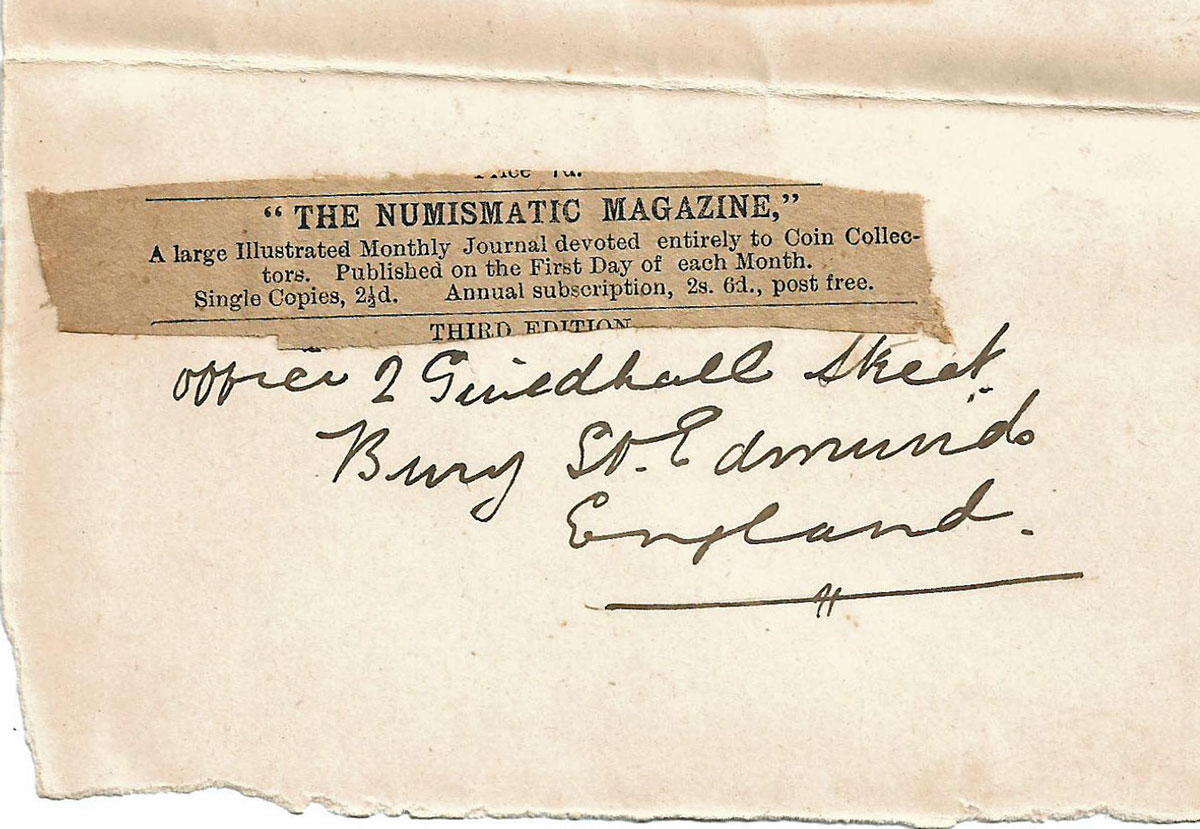 Price 7d.
“THE NUMISMATIC MAGAZINE,”
A large Illustrated Monthly Journal devoted entirely to Coin Collec-
tors. Published on the First Day of each Month.
Single Copies, 2½d. Annual subscription, 2s. 6d., post free.
THIRD EDITION
office 2 Guildhall Street
Bury St. Edmunds
England.